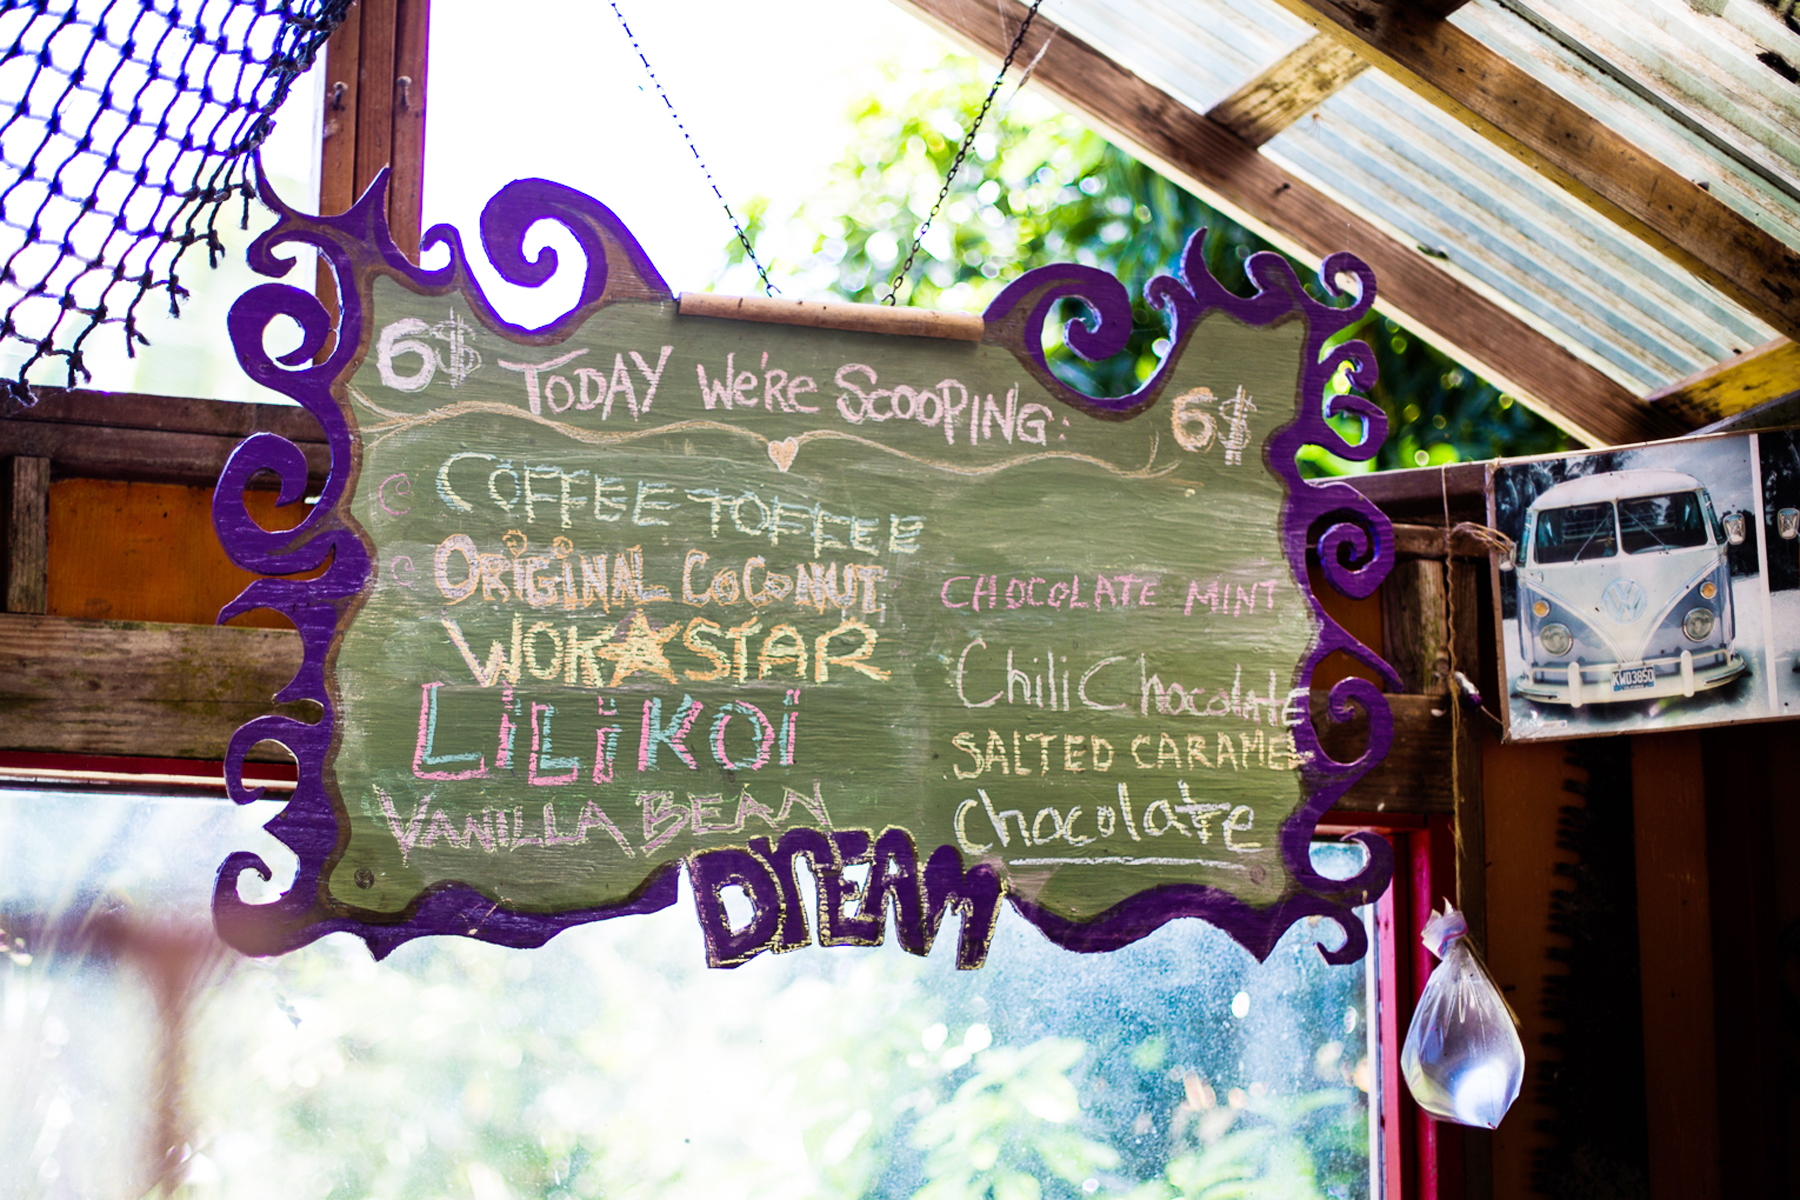 6$ TODAY We're SCOOPING: 6$
COFFEE TOFFEE
ORiGiNAL COCONUT
WOK★STAR
LiLiKOi
VANILLA BEAN
CHOCOLATE MINT
Chili Chocolate
SALTED CARAMEL
chocolate
DREAM
VW
KWO385D